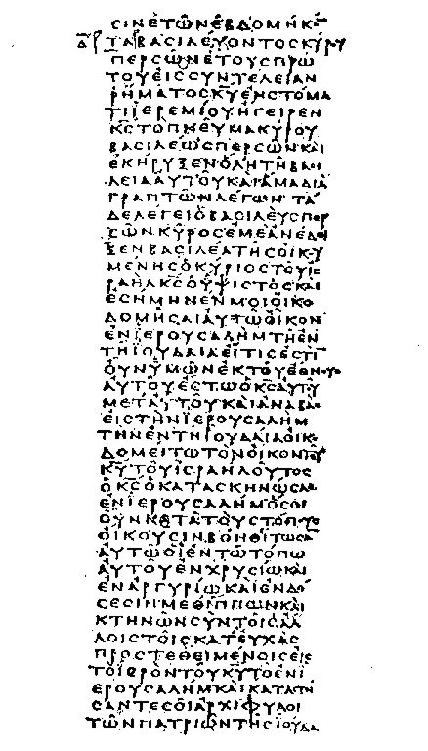 ϹΙΝΕΤΩΝΕΒΔΟΜΗΚΟ̅
Δ̅ ΤΑΒΑϹΙΛΕΥΟΝΤΟϹΚΥΡΟΥ
ΠΕΡϹΩΝΕΤΟΥϹΠΡΩ
ΤΟΥΕΙϹϹΥΝΤΕΛΕΙΑΝ
ΡΗΜΑΤΟϹΚ̅Υ̅ΕΝϹΤΟΜΑ
ΤΙΙΕΡΕΜΙΟΥΗΓΕΙΡΕΝ
Κ̅Ϲ̅ΤΟΠΝΕΥΜΑΚΥΡΟΥ
ΒΑϹΙΛΕΩϹΠΕΡϹΩΝΚΑΙ
ΕΚΗΡΥΞΕΝΟΛΗΤΗΒΑϹΙ
ΛΕΙΑΑΥΤΟΥΚΑΙΑΜΑΔΙΑ
ΓΡΑΠΤΩΝΛΕΓΩΝΤΑ
ΔΕΛΕΓΕΙΟΒΑϹΙΛΕΥϹΠΕΡ
ϹΩΝΚΥΡΟϹΕΜΕΑΝΕΔΕΙ
ΞΕΝΒΑϹΙΛΕΑΤΗϹΟΙΚΟΥ
ΜΕΝΗϹΟΚΥΡΙΟϹΤΟΥΙϹ
ΡΑΗΛΚ̅Ϲ̅ΟΥΨΙϹΤΟϹΚΑΙ
ΕϹΗΜΗΝΕΝΜΟΙΟΙΚΟ
ΔΟΜΗϹΑΙΑΥΤΩΟΙΚΟΝ
ΕΝΙΕΡΟΥϹΑΛΗΜΤΗΕΝ
ΤΗΙΟΥΔΑΙΑΕΙΤΙϹΕϹΤΙ̅
ΟΥΝΥΜΩΝΕΚΤΟΥΕΘΝΟΥϹ
ΑΥΤΟΥΕϹΤΩΟΚ̅Ϲ̅ΑΥΤΟΥ
ΜΕΤΑΥΤΟΥΚΑΙΑΝΑΒΑϹ
ΕΙϹΤΗΝΙΕΡΟΥϹΑΛΗΜ
ΤΗΝΕΝΤΗΙΟΥΔΑΙΑΟΙΚΟ
ΔΟΜΕΙΤΩΤΟΝΟΙΚΟΝΤΟΥ
Κ̅Υ̅ΤΟΥΙϹΡΑΗΛΟΥΤΟϹ
ΟΚ̅Ϲ̅ΟΚΑΤΑϹΚΗΝΩϹΑϹ
ΕΝΙΕΡΟΥϹΑΛΗΜΟϹΟΙ
ΟΥΝΚΑΤΑΤΟΥϹΤΟΠΟΥϹ
ΟΙΚΟΥϹΙΝΒΟΗΘΙΤΩϹΑ̅
ΑΥΤΩΟΙΕΝΤΩΤΟΠΩ
ΑΥΤΟΥΕΝΧΡΥϹΙΩΚΑΙ
ΕΝΑΡΓΥΡΙΩΚΑΙΕΝΔΟ
ϹΕϹΙΝΜΕΘΙΠΠΩΝΚΑΙ
ΚΤΗΝΩΝϹΥΝΤΟΙϹΑΛ
ΛΟΙϹΤΟΙϹΚΑΤΕΥΧΑϹ
ΠΡΟϹΤΕΘΕΙΜΕΝΟΙϹΕΙϹ
ΤΟΙΕΡΟΝΤΟΥΚ̅Υ̅ΤΟΕΝΙ
ΕΡΟΥϹΑΛΗΜΚΑΙΚΑΤΑϹΤΗ
ϹΑΝΤΕϹΟΙΑΡΧΙΦΥΛΟΙ
ΤΩΝΠΑΤΡΙΩΝΤΗϹΙΟΥΔΑ